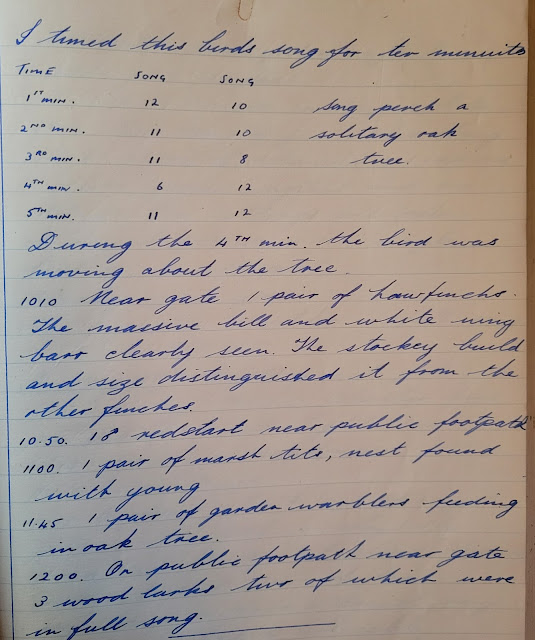 I timed this birds song for ten minuits
TIME SONG SONG
1ST MIN. 12 10 song perch a
2ND MIN. 11 10 solitary oak
3RD MIN. 11 8 tree.
4TH MIN. 6 12
5TH MIN. 11 12
During the 4TH min. the bird was
moving about the tree.
1010 Near gate 1 pair of hawfinchs.
The massive bill and white wing
barr clearly seen. The stockey build
and size distinguished it from the
other finches.
10.50. redstart near public footpath
1100. 1 pair of marsh tits, nest found
with young
11.45 1 pair of garden warblers feeding
in oak tree.
1200. On public footpath near gate
3 wood larks two of which were
in full song.